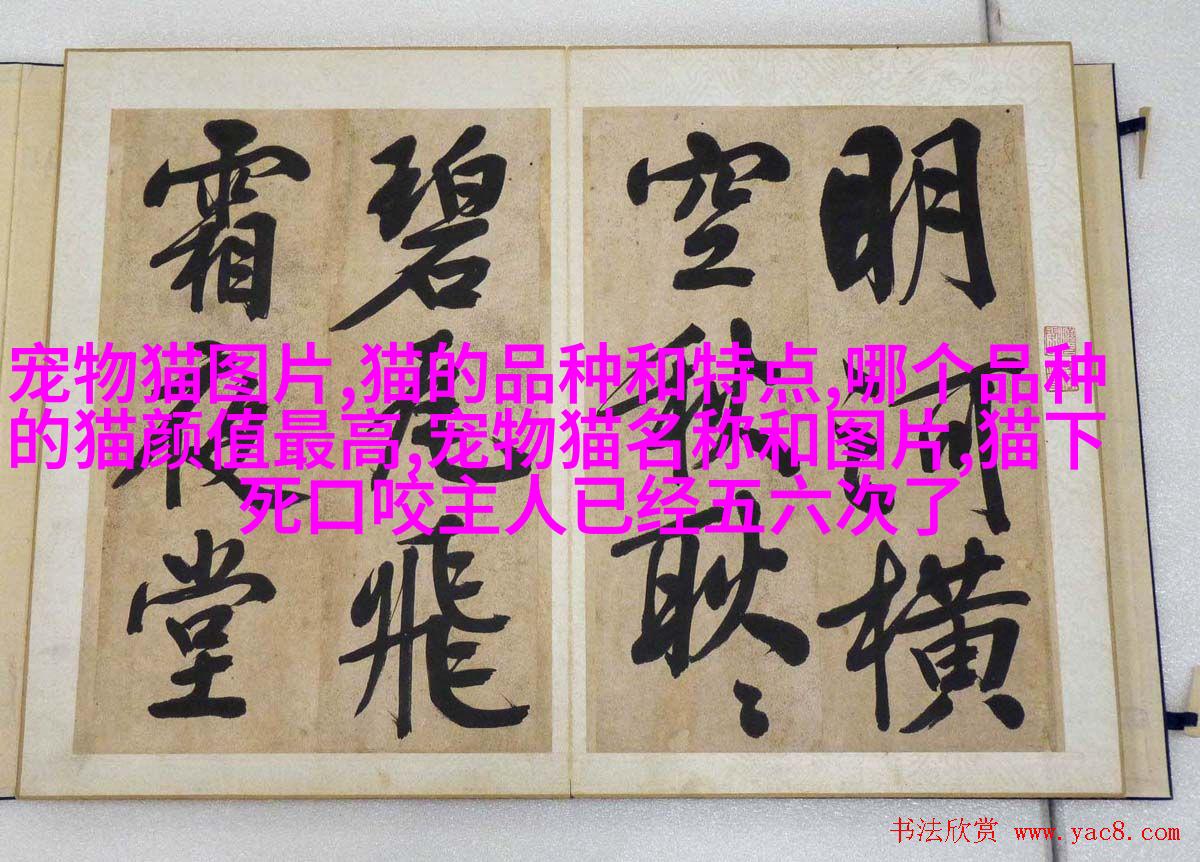 明河橫
空秋耿々
碧瓦飛
霜夜堂
宠物猫图片,猫的品种和特点,哪个品种
的猫颜值最高,宠物猫名称和图片,猫下
死口咬主人已经五六次了
书法欣赏 www.yac8.com